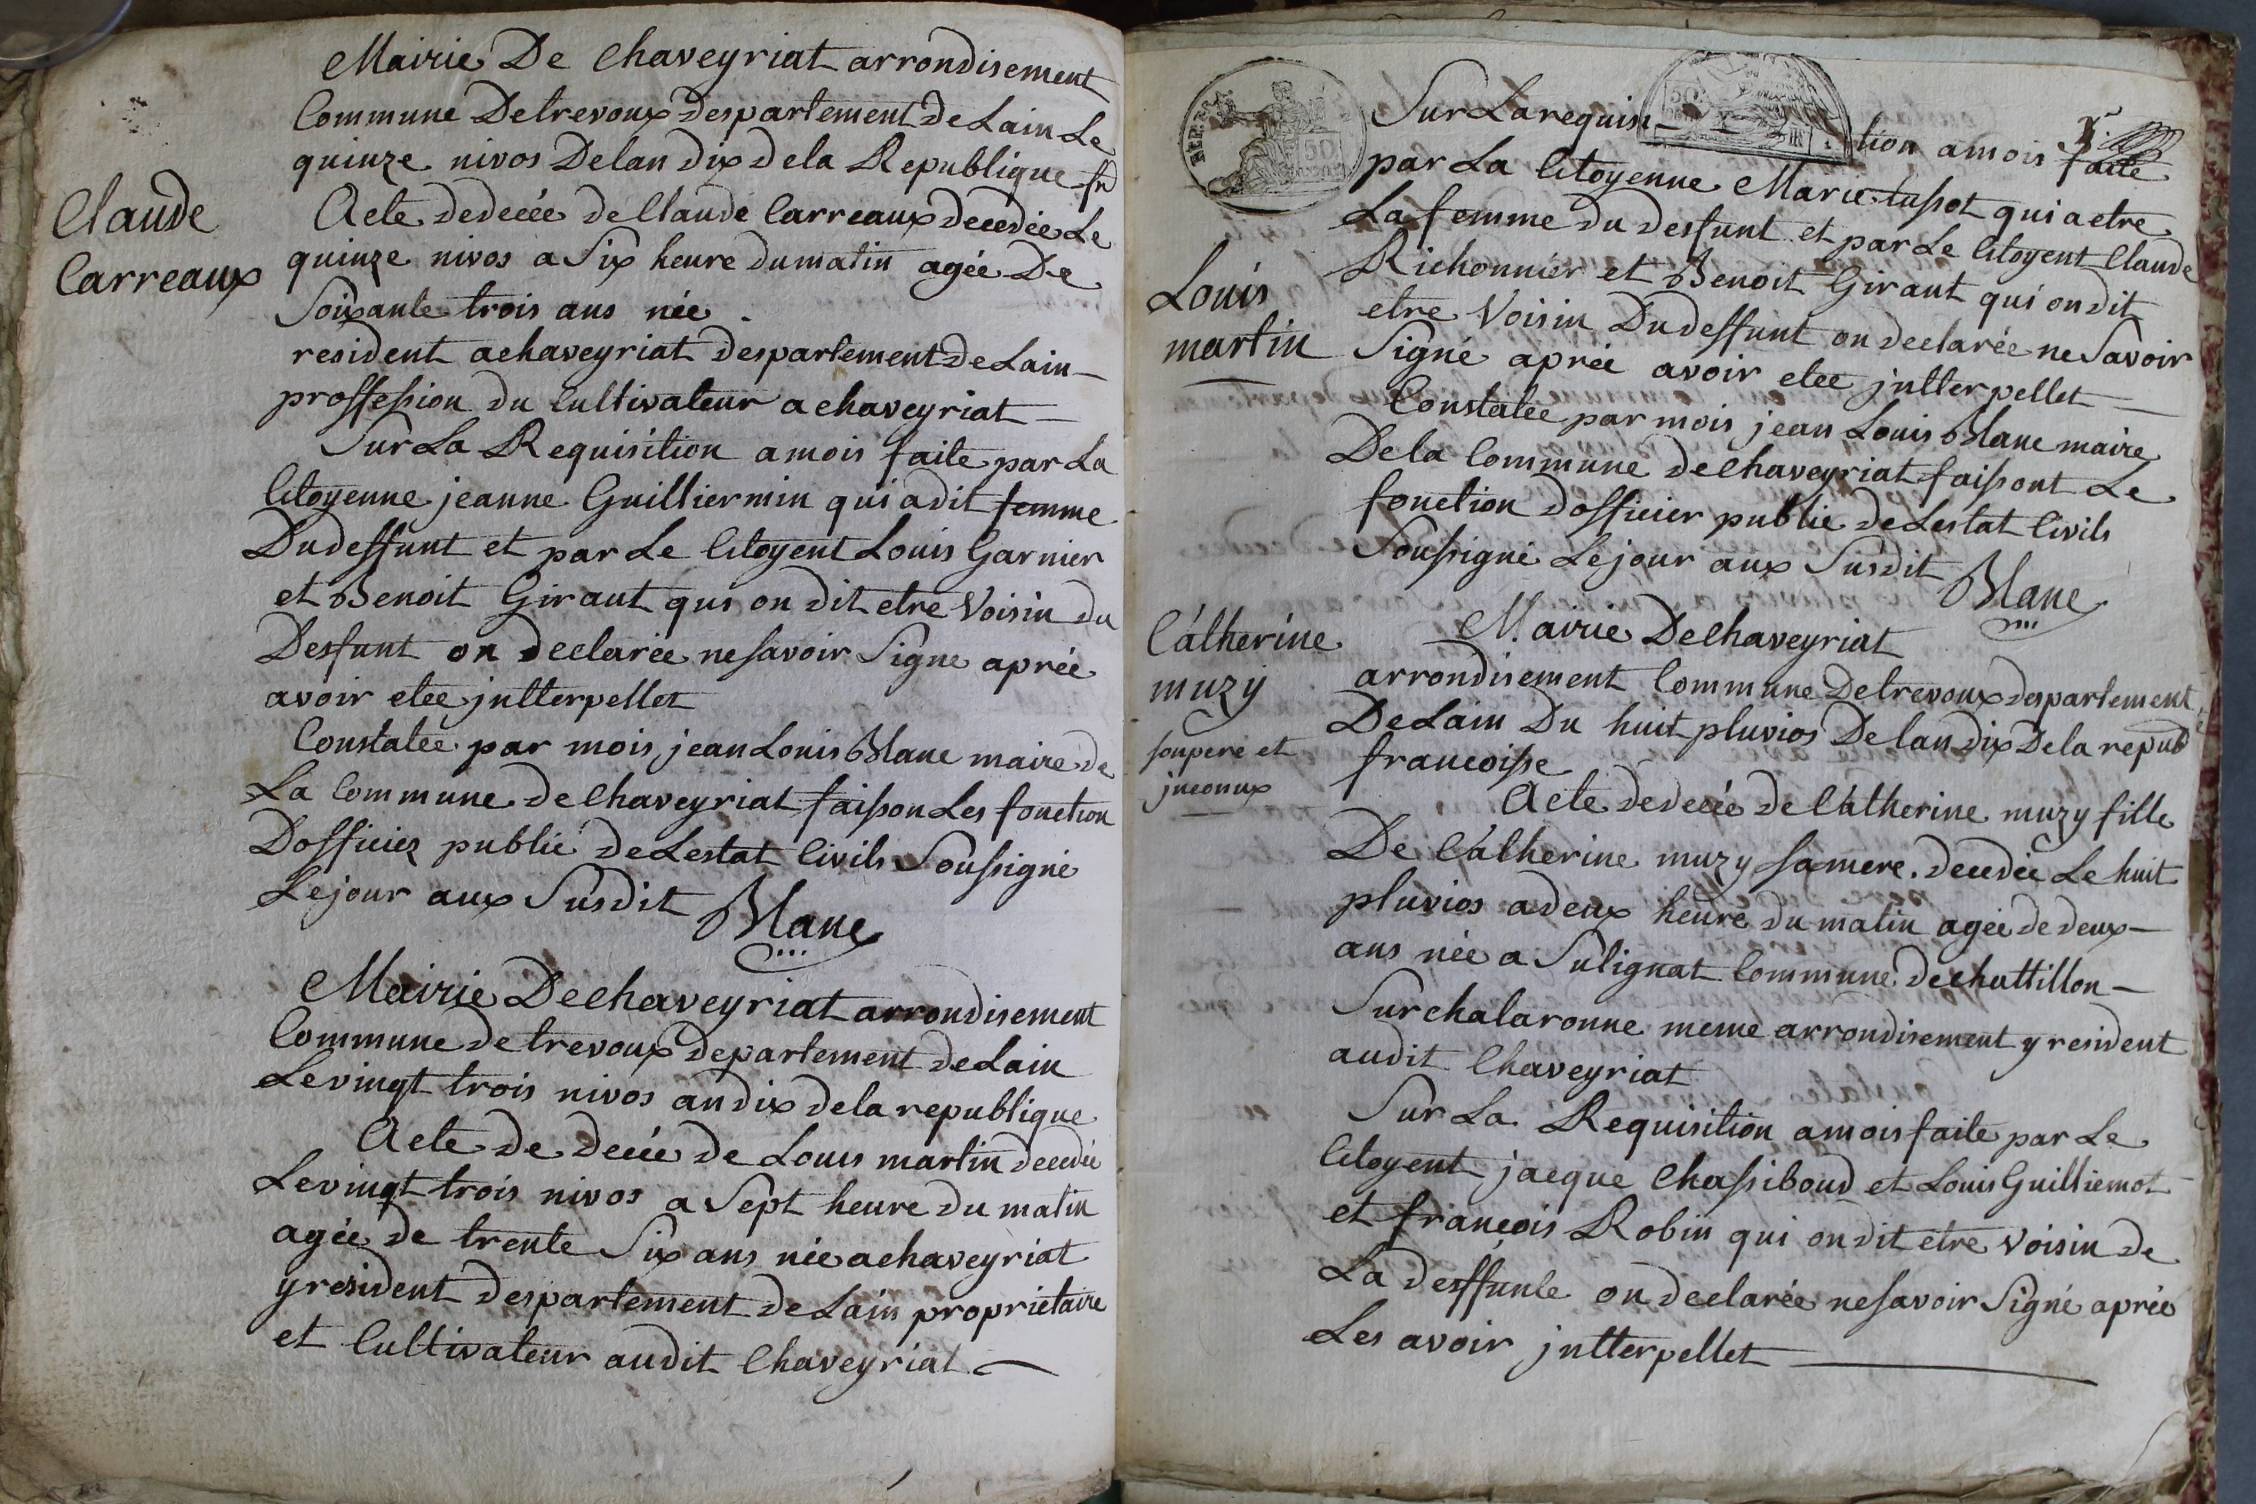 Mairie De Chaveyriat arrondisement
Commune De trevoux despartement de Lain Le
quinze nivos De lan dix de la Republique fr
Claude
Carreaux
Acte de decée de Claude Carreaux decedée Le
quinze nivos a Six heure du matin agée De
Soixante trois ans née
resident a chaveyriat despartement de Lain
proffession du Cultivateur a chaveyriat
Sur La Requisition a mois faite par La
Citoyenne jeanne Guilliermin qui a dit femme
Du deffunt et par Le Citoyent Louis Garnier
et Benoit Giraut qui on dit etre Voisin du
Desfunt on declarée ne savoir Signe aprée
avoir etee jntterpellet
Constatee par mois jean Louis Blanc maire de
La Commune de Chaveyriat faisson Les fonction
Dofficier public de Lestat Civils Soussigné
Le jour aux Susdit Blanc
Mairie De chaveyriat arrondisement
Commune de trevoux departement de Lain
Le vingt trois nivos an dix de la republique
Acte de decée de Louis martin decedée
Le vingt trois nivos a Sept heure du matin
agée de trente Six ans née a chaveyriat
y resident despartement de Lain proprietaire
et Cultivateur audit Chaveyriat
REP.
50
50
Sur La requisi tion a mois faite
par La Citoyenne Marie tussot qui a etre
La femme du desfunt et par Le Citoyent Claude
Richonnier et Benoit Giraut qui on dit
Louis
martin
etre Voisin Du deffunt on declarée ne Savoir
Signé aprée avoir etee jntterpellet
Constatee par mois jean Louis Blanc maire
De la Commune de Chaveyriat faissont Le
fonction dofficier public de Lestat Civils
Soussigné Le jour aux Susdit Blanc
Catherine
muzy
sou pere et
jnconux
Mairie De Chaveyriat
arrondisement Commune De trevoux despartement
De Lain Du huit pluvios De lan dix De la repub
francoisse
Acte de decée de Catherine muzy fille
De Catherine muzy sa mere. decedée Le huit
pluvios a deux heure du matin agée de deux
ans née a Sulignat Commune de chattillon
Sur chalaronne meme arrondisement y resident
audit Chaveyriat
Sur La Requisition a mois faite par Le
Citoyent jacque Chassiboud et Louis Guilliemot
et francois Robin qui on dit etre Voisin de
La deffunte on declarée ne savoir Signé aprée
Les avoir jntterpellet